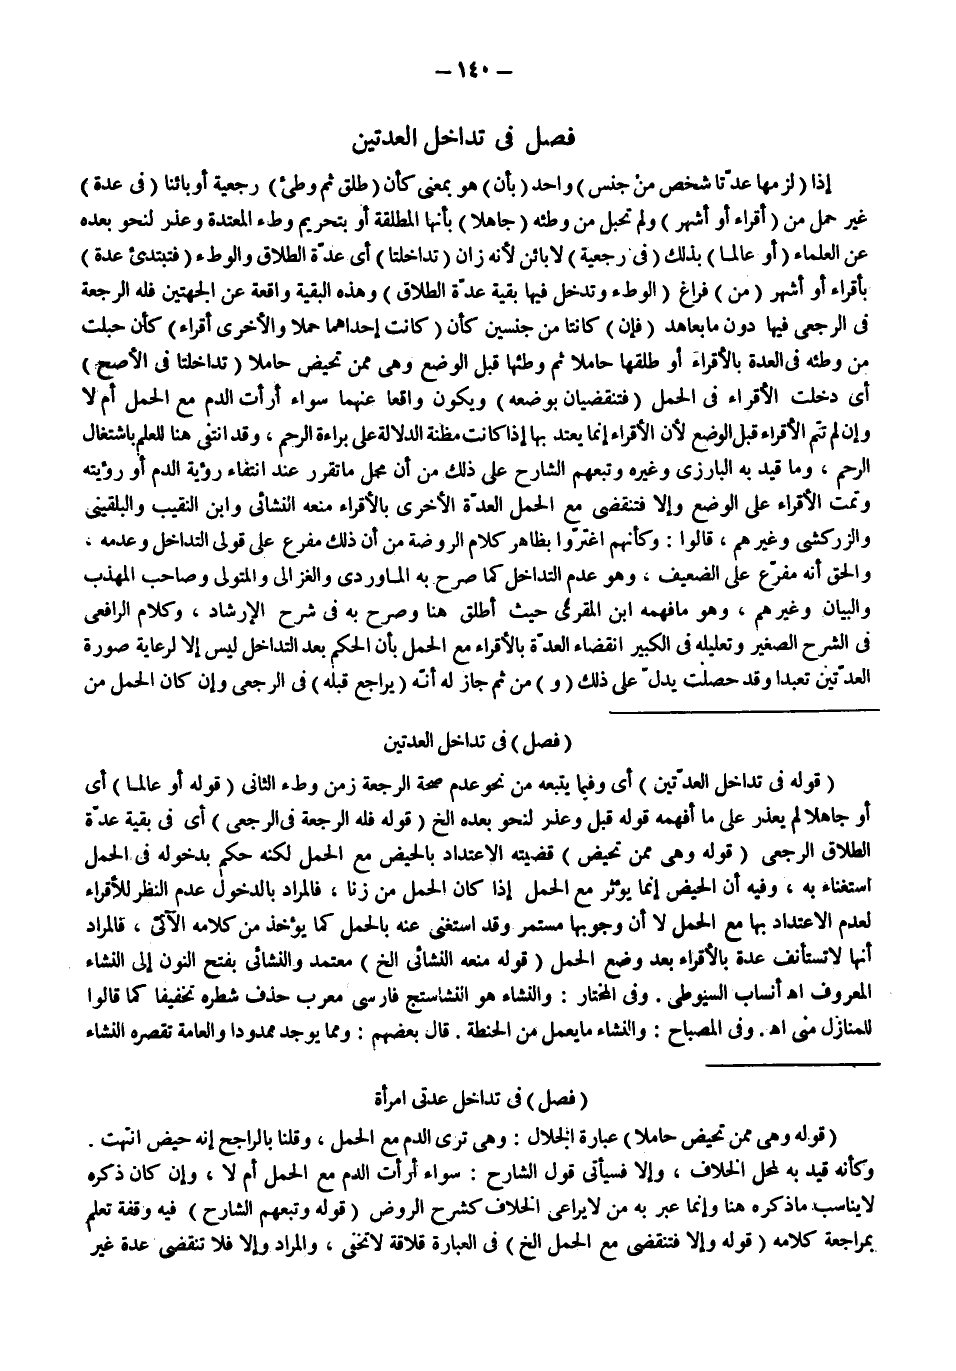 – ١٤٠ –
فصل فى تداخل العدتين
إذا ( لزمها عدّتا شخص من جنس ) واحد ( بأن ) هو بمعنى كأن ( طلق ثم وطئ ) رجعية أو بائنا ( فى عدة )
غير حمل من ( أقراء أو أشهر ) ولم تحبل من وطئه ( جاهلا ) بأنها المطلقة أو بتحريم وطء المعتدة وعذر لنحو بعده
عن العلماء ( أو عالما ) بذلك ( فى رجعية ) لا بائن لأنه زان ( تداخلتا ) أى عدّة الطلاق والوطء ( فتبتدئ عدة )
بأقراء أو أشهر ( من ) فراغ ( الوطء وتدخل فيها بقية عدّة الطلاق ) وهذه البقية واقعة عن الجهتين فله الرجعة
فى الرجعى فيها دون مابعاهد ( فإن ) كانتا من جنسين كأن ( كانت إحداهما حملا والأخرى أقراء ) كأن حبلت
من وطئه فى العدة بالأقراء أو طلقها حاملا ثم وطئها قبل الوضع وهى ممن تحيض حاملا ( تداخلتا فى الأصح )
أى دخلت الأقراء فى الحمل ( فتنقضيان بوضعه ) ويكون واقعا عنهما سواء أرأت الدم مع الحمل أم لا
وإن لم تتم الأقراء قبل الوضع لأن الأقراء إنما يعتد بها إذا كانت مظنة الدلالة على براءة الرحم ، وقد انتفى هنا للعلم باشتغال
الرحم ، وما قيد به البارزى وغيره وتبعهم الشارح على ذلك من أن محل ماتقرر عند انتفاء رؤية الدم أو رؤيته
وتمت الأقراء على الوضع وإلا فتنقضى مع الحمل العدّة الأخرى بالأقراء منعه النشائى وابن النقيب والبلقينى
والزركشى وغيرهم ، قالوا : وكأنهم اغترّوا بظاهر كلام الروضة من أن ذلك مفرع على قولى التداخل وعدمه ،
والحق أنه مفرّع على الضعيف ، وهو عدم التداخل كما صرح به الماوردى والغزالى والمتولى وصاحب المهذب
والبيان وغيرهم ، وهو مافهمه ابن المقرى حيث أطلق هنا وصرح به فى شرح الإرشاد ، وكلام الرافعى
فى الشرح الصغير وتعليله فى الكبير انقضاء العدّة بالأقراء مع الحمل بأن الحكم بعد التداخل ليس إلا لرعاية صورة
العدّتين تعبدا وقد حصلت يدلّ على ذلك ( و ) من ثم جاز له أنّه ( يراجع قبله ) فى الرجعى وإن كان الحمل من
( فصل ) فى تداخل العدتين
( قوله فى تداخل العدّتين ) أى وفيما يتبعه من نحو عدم صحة الرجعة زمن وطء الثانى ( قوله أو عالما ) أى
أو جاهلا لم يعذر على ما أفهمه قوله قبل وعذر لنحو بعده الخ ( قوله فله الرجعة فى الرجعى ) أى فى بقية عدّة
الطلاق الرجعى ( قوله وهى ممن تحيض ) قضيته الاعتداد بالحيض مع الحمل لكنه حكم بدخوله فى الحمل
استغناء به ، وفيه أن الحيض إنما يؤثر مع الحمل إذا كان الحمل من زنا ، فالمراد بالدخول عدم النظر للأقراء
لعدم الاعتداد بها مع الحمل لا أن وجوبها مستمر وقد استغنى عنه بالحمل كما يؤخذ من كلامه الآتى ، فالمراد
أنها لاتستأنف عدة بالأقراء بعد وضع الحمل ( قوله منعه النشائى الخ ) معتمد والنشائى بفتح النون إلى النشاء
المعروف اه أنساب السيوطى . وفى المختار : والنشاء هو النشاستج فارسى معرب حذف شطره تخفيفا كما قالوا
للمنازل منى اه . وفى المصباح : والنشاء مايعمل من الحنطة . قال بعضهم : ومما يوجد ممدودا والعامة تقصره النشاء
( فصل ) فى تداخل عدتى امرأة
( قوله وهى ممن تحيض حاملا ) عبارة الجلال : وهى ترى الدم مع الحمل ، وقلنا بالراجح إنه حيض انتهت .
وكأنه قيد به لمحل الخلاف ، وإلا فسيأتى قول الشارح : سواء أرأت الدم مع الحمل أم لا ، وإن كان ذكره
لايناسب ماذكره هنا وإنما عبر به من لايراعى الخلاف كشرح الروض ( قوله وتبعهم الشارح ) فيه وقفة تعلم
بمراجعة كلامه ( قوله وإلا فتنقضى مع الحمل الخ ) فى العبارة قلاقة لاتخفى ، والمراد وإلا فلا تنقضى عدة غير